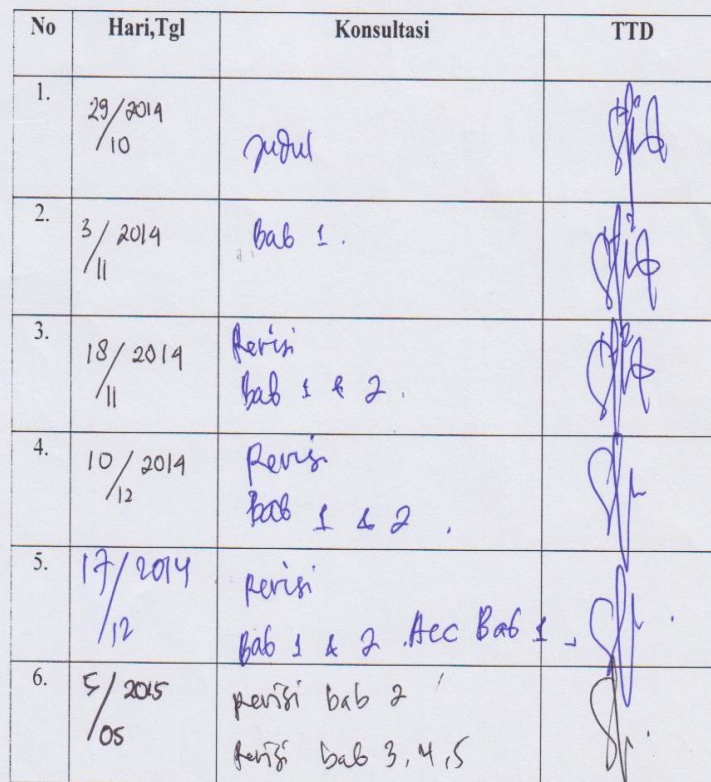 No Hari,Tgl Konsultasi TTD
1. 29/10 2014 Judul
2. 3/11 2014 Bab 1.
3. 18/11 2014 Revisi
Bab 1 & 2.
4. 10/12 2014 Revisi
Bab 1 & 2.
5. 17/12 2014 Revisi
Bab 1 & 2. Acc Bab 1
6. 5/05 2015 revisi bab 2
Revisi bab 3, 4, 5